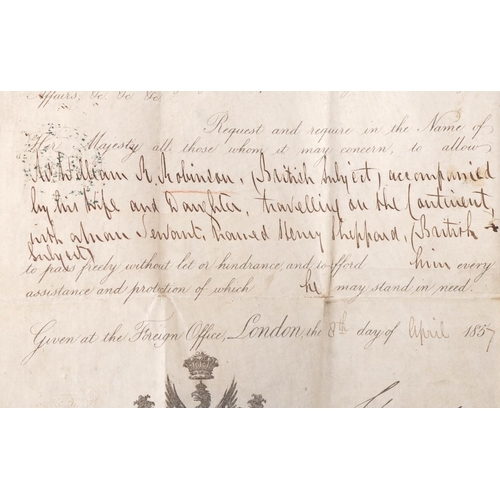 Affairs, &c. &c. &c.
Request and require in the Name of
Her Majesty all those whom it may concern, to allow
Mr. William R. Robinson, (British Subject), accompanied
by his Wife and Daughter, travelling on the Continent,
with a Man Servant, named Henry Sheppard, (British
Subject)
to pass freely without let or hindrance, and to afford him every
assistance and protection of which he may stand in need.
Given at the Foreign Office, London, the 8th day of April 1857